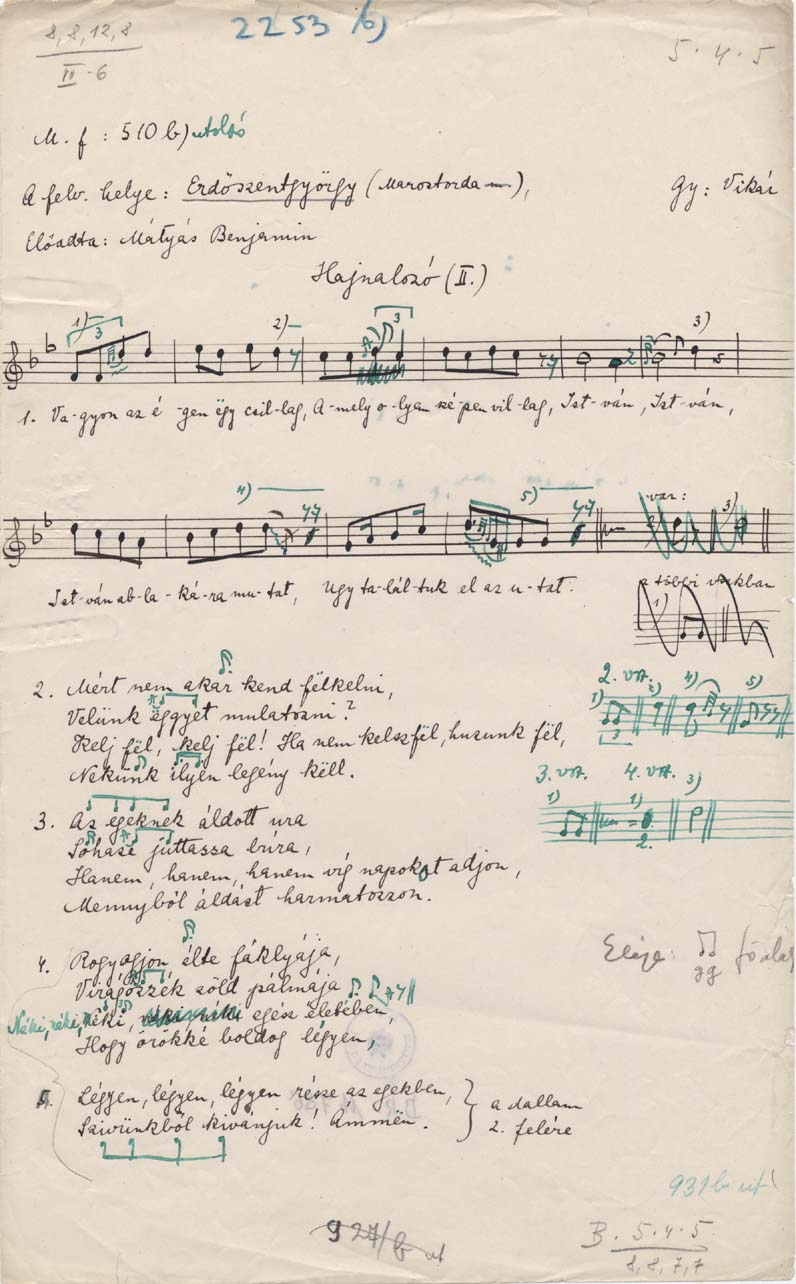 8, 8, 12, 8
2253 b)
5. 4. 5
IV - 6
M. f : 510 b) utolsó
A felv. helye : Erdőszentgyörgy (Marostorda m),
Gy: Vikár
Előadta: Mátyás Benjamin
Hajnalozó (II.)
1) 3 2) 3 3)
1. Va-gyon az é-gen ëgy csil-lag, A-mely o-lyan szé-pen vil-lag, Ist-ván, Ist-ván,
4) 5) var: 3)
Ist-ván ab-la-ká-ra mu-tat, Ugy ta-lál-tuk el az u-tat.
a többi versszakban
1)
2. Mért nem akar kend fëlkelni,
2. vsz.
Velünk ëggyet mulatozni?
1) 2) 4) 5)
3
Kelj fël, kelj fël! Ha nem kelsz fël, huzunk fël,
Nekünk ilyen legény këll.
3. vsz. 4. vsz.
1) 1) 3)
2.
3. Az egeknek áldott ura
Sohase juttassa búra,
Hanem, hanem, hanem víg napokot adjon,
Mennyből áldást harmatozzon.
Eleje: gg főalak
4. Rogyogjon élte fáklyája,
Virágozzék zöld pálmája
Néki, néki, néki, egész életében,
Hogy örökké boldog légyen,
5. Légyen, légyen, légyen része az egekben,
Szivünkből kivánjuk! Ámmën.
a dallam
2. felére
931 b ut
927/b ut
B. 5. 4. 5
8, 8, 7, 7